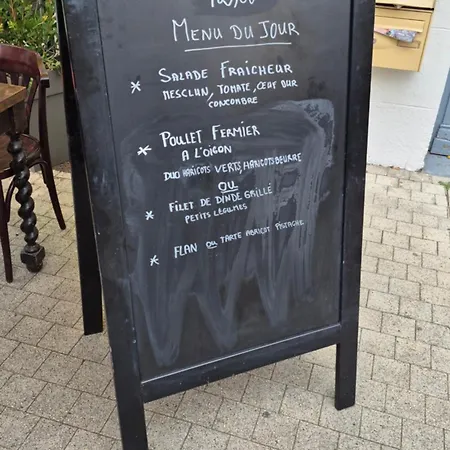 MENU DU JOUR
* SALADE FRAICHEUR
MESCLUN, TOMATE, ŒUF DUR
CONCOMBRE
* POULET FERMIER
A L'OIGON
DUO HARICOTS VERTS, HARICOTS BEURRE
OU
* FILET DE DINDE GRILLÉ
PETITS LÉGUMES
* FLAN OU TARTE ABRICOT PISTACHE